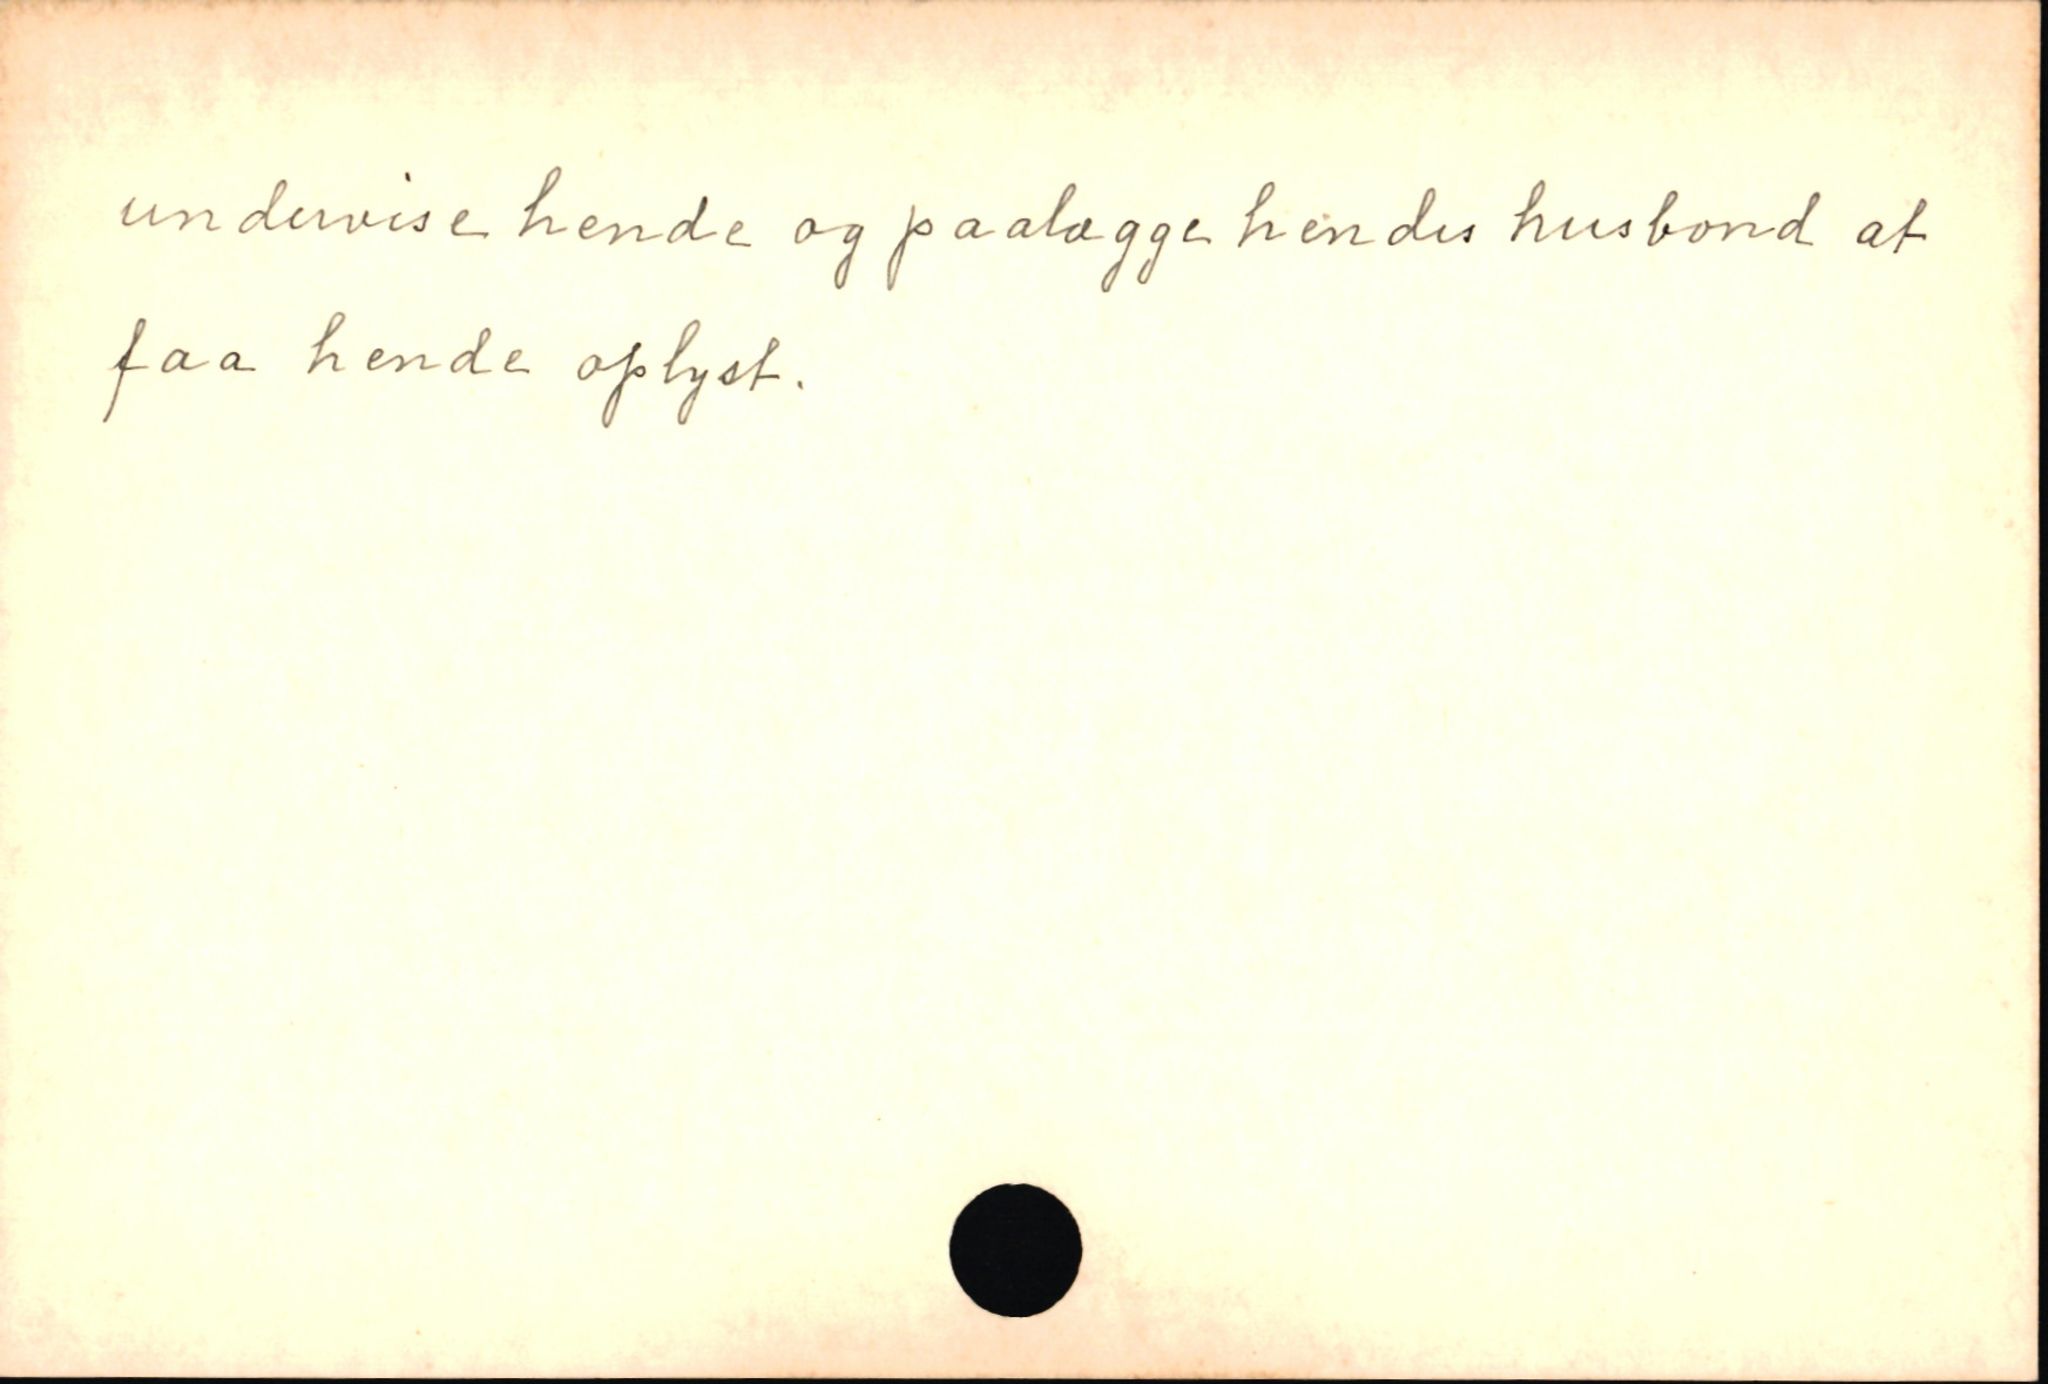 undervise hende og paalægge hendes husbond at
faa hende oplyst.